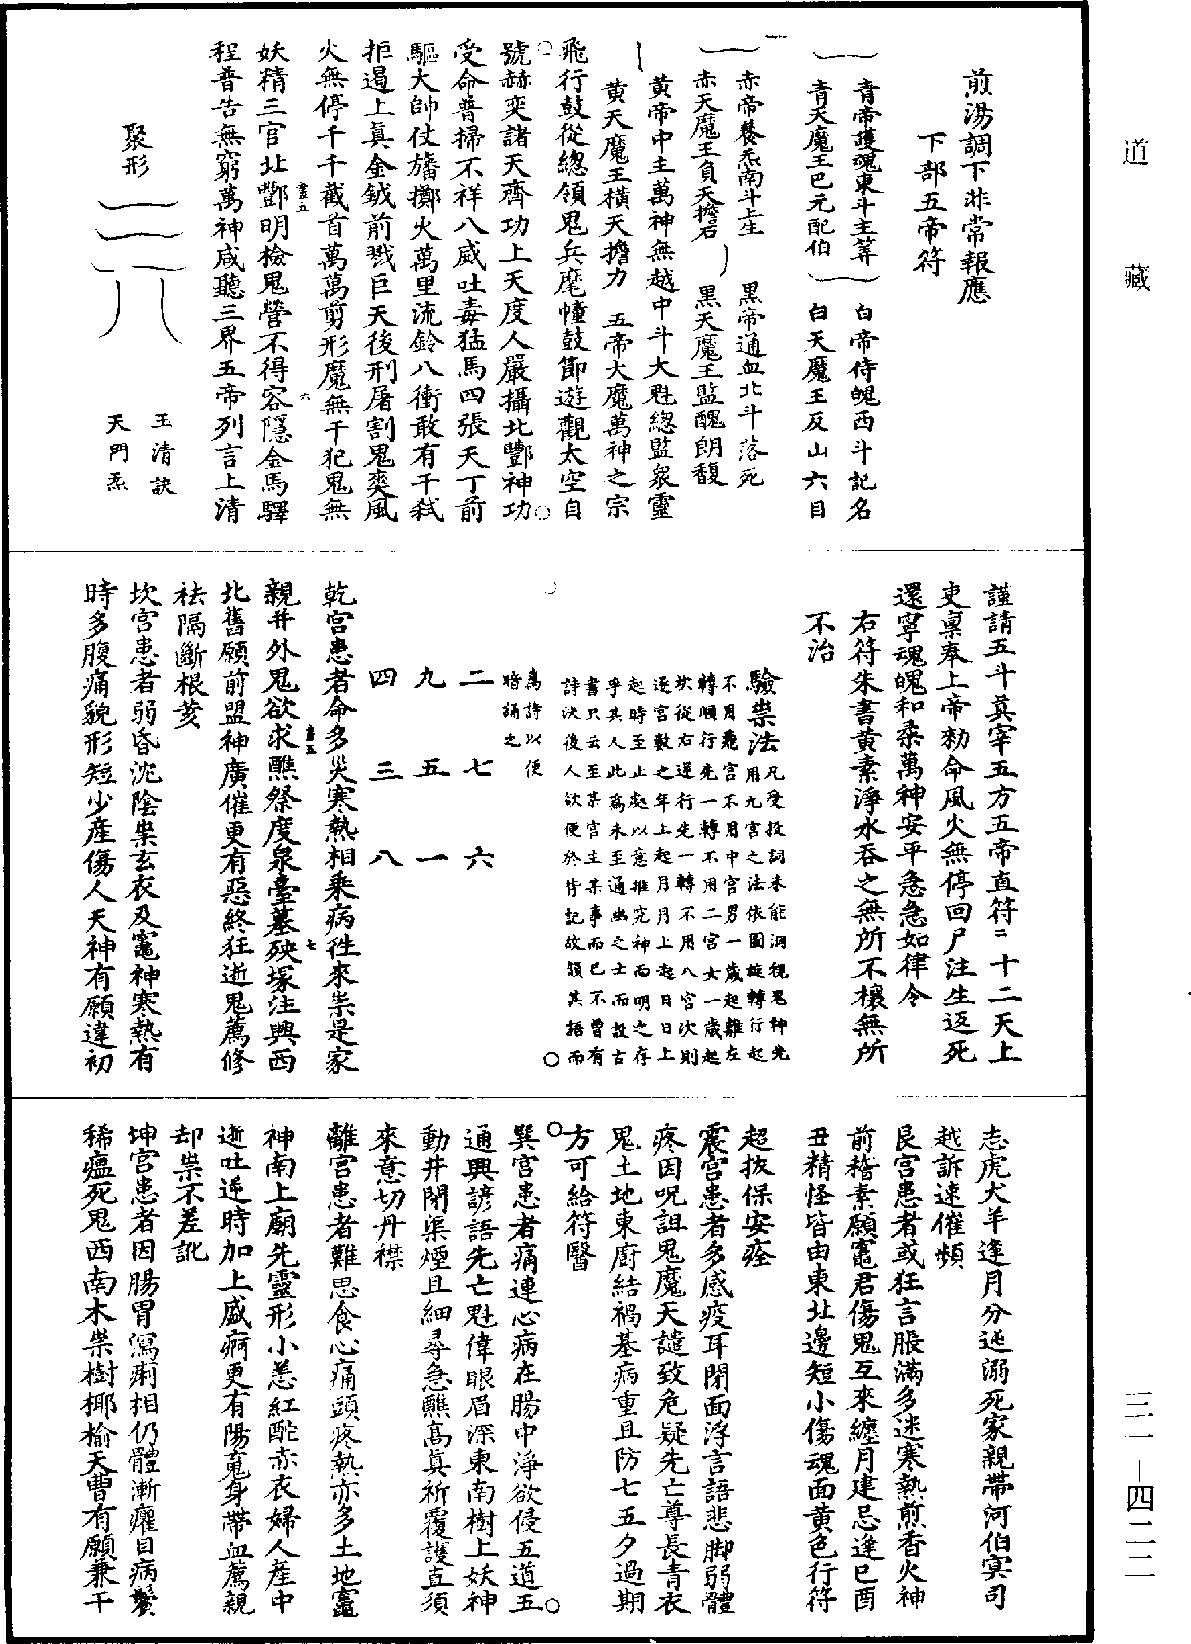 道藏
煎湯調下非常報應
下部五帝符
青帝護魂東斗主筭
青天魔王巴元醜伯
白帝侍魄西斗記名
白天魔王反山六目
赤帝養炁南斗上生
赤天魔王負天擔石
黑帝通血北斗落死
黑天魔王監醜朗馥
黄帝中主萬神無越中斗大魁總監衆靈
黄天魔王横天擔力 五帝大魔萬神之宗
飛行鼓從總領鬼兵麾幢鼓節遊觀太空自
號赫奕諸天齊功上天度人嚴攝北酆神功
受命普掃不祥八威吐毒猛馬四張天丁前
驅大帥仗旛擲火萬里流鈴八衝敢有干試
拒遏上真金鉞前戮巨天後刑屠割鬼爽風
火無停千千截首萬萬剪形魔無干犯鬼無
妖精三官北酆明檢鬼營不得容隱金馬驛
程普告無窮萬神咸聽三界五帝列言上清
聚形
玉清訣
天門炁
謹請五斗真宰五方五帝直符二十二天上
吏稟奉上帝勑命風火無停回尸注生返死
還寧魂魄和柔萬神安平急急如律令
右符朱書黄素淨水吞之無所不禳無所
不治
驗祟法
凡受投詞未能洞視鬼神先
用九宫之法依圖旋轉行起
不用飛宫不用中宫男一歲起離左
轉順行先一轉不用二宫女一歲起
坎從右逆行先一轉不用八宫次則
逐宫數之年上起月月上起日日上
起時至止處以意推究神而明之存
乎其人此為未至通幽之士而設古
書只云至某宫主某事而已不曾有
詩決後人欲便於背記故韻其括而
為詩以便
暗誦之
二 七 六
九 五 一
四 三 八
乾宫患者命多災寒熱相乘病徃來祟是家
親并外鬼欲求醮祭度泉臺墓殃塚注興西
北舊願前盟神廣催更有惡終狂逝鬼薦修
祛隔斷根荄
坎宫患者弱昏沈陰祟玄衣及竈神寒熱有
時多腹痛貌形短少産傷人天神有願違初
志虎犬羊逢月分迍溺死家親帶河伯㝠司
越訴速催頻
艮宫患者或狂言脹滿多迷寒熱煎香火神
前稽素願竈君傷鬼互來纏月建忌逢巳酉
丑精怪皆由東北邊短小傷魂面黄色行符
超拔保安痊
震宫患者多感疫耳閉面浮言語悲脚弱體
疼因呪詛鬼魔天譴致危疑先亡尊長青衣
鬼土地東廚結禍基病重且防七五夕過期
方可給符醫
巽宫患者痛連心病在腸中淨欲侵五道五
通興諺語先亡魁偉眼眉深東南樹上妖神
動井閉渠煙且細尋急醮髙真祈覆護直須
來意切丹襟
離宫患者難思食心痛頭疼熱亦多土地竈
神南上廟先靈形小恙紅酡赤衣婦人産中
逝吐逆時加上盛痾更有陽寃身帶血薦親
却祟不差訛
坤宫患者因腸胃瀉痢相仍體漸癯目病鬢
稀瘟死鬼西南木祟樹揶揄天曹有願兼干
三一-四二二